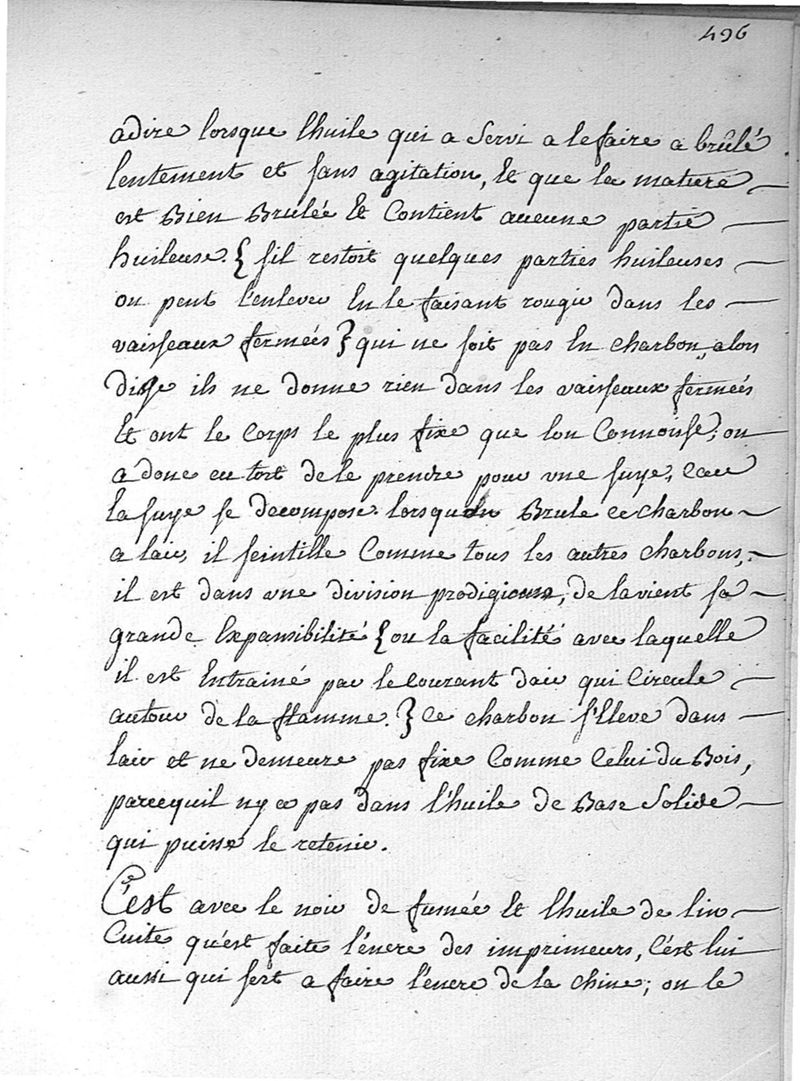 496
adire lorsque lhuile qui a servi a le faire a brûlé
lentement et sans agitation, Et que la matiere
est Bien Brulée Et Contient aucune partie
huileuse. { s'il restoit quelques parties huileuses
on peut l'enlever En le faisant rougir dans les
vaisseaux fermées } qui ne soit pas En charbon, alors
disje ils ne donne rien dans les vaisseaux fermeés
Et ont le Corps le plus fixe que lon Connoisse; on
a donc eu tort de le prendre pour une suye, Car
la suye se decompose. lorsquon Brule ce charbon
a lair, il scintille Comme tous les autres charbons,
il est dans une division prodigieuse, de la vient sa
grande Expansibilité { ou la facilité avec laquelle
il est Entrainé par le Courant dair qui Circule
autour de la flamme. } Ce charbon s'Eleve dans
lair et ne demeure pas fixe Comme Celui du Bois,
parcequil ny a pas dans l'huile de Base Solide
qui puisse le retenir.
C'est avec le noir de fumée Et lhuile de lin
Cuite qu'est faite l'encre des imprimeurs, C'est lui
aussi qui sert a faire l'encre de la chine; on le